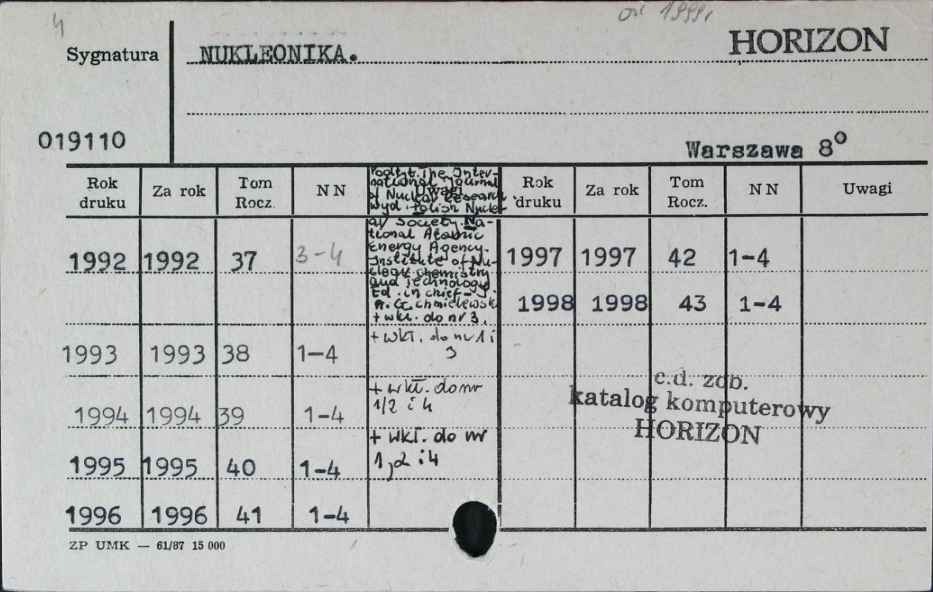 4
od 1999r
Sygnatura
NUKLEONIKA.
HORIZON
019110
Warszawa 8°
Rok druku Za rok Tom Rocz. NN Uwagi Rok druku Za rok Tom Rocz. NN Uwagi
Podtyt. The Inter-
national Journal
of Nuclear Research
Wyd. Polish Nucle-
ar Society. Na-
tional Atomic
Energy Agency.
Institute of Nu-
clear chemistry
and Technology
Ed. in chief –
A. G. Chmielewski
+ wkł. do nr 3.
1992 1992 37 3-4
1993 1993 38 1-4 + wkł. do nr 1 i
3
1994 1994 39 1-4 + wkł. do nr
1/2 i 4
1995 1995 40 1-4 + wkł. do nr
1, 2 i 4
1996 1996 41 1-4
1997 1997 42 1-4
1998 1998 43 1-4
c.d. zob.
katalog komputerowy
HORIZON
ZP UMK — 61/87 15 000